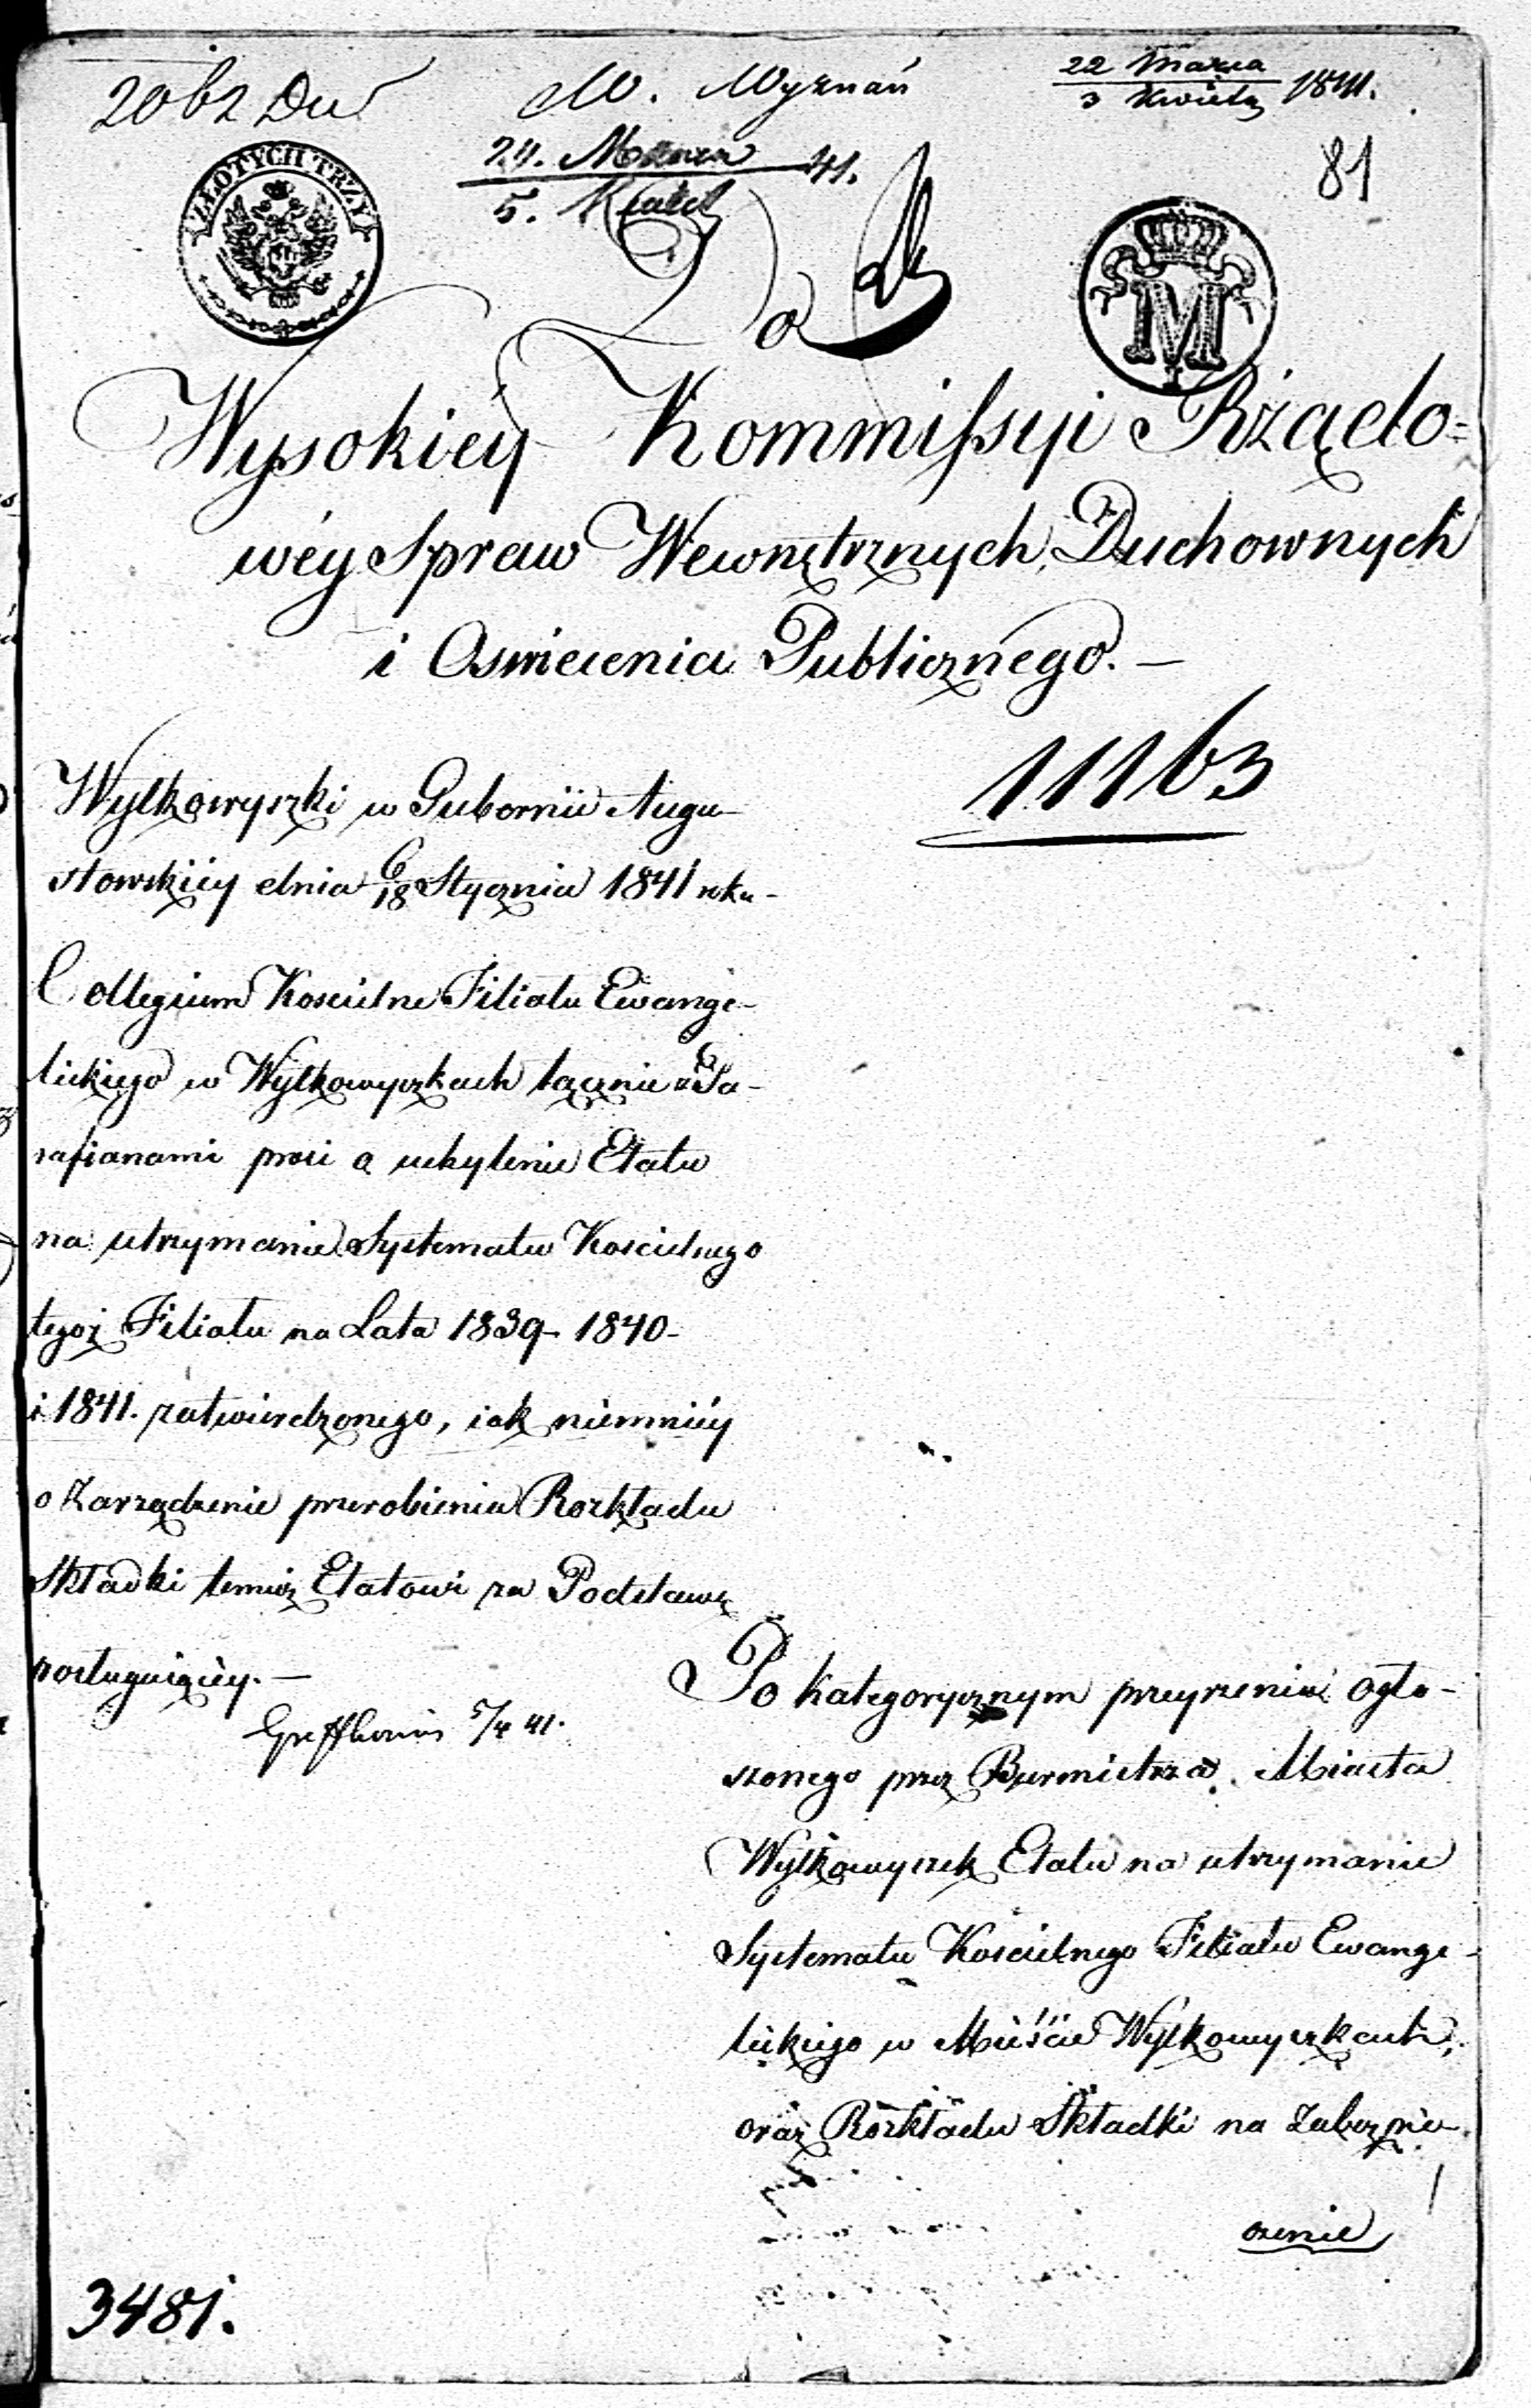 2062 Du
W. Wyznań
22 Marca / 3 Kwietn 1841.
24. Marca / 5. Kwiet 41.
81
ZŁOTYCH TRZY
M
I
Do
Wysokiéy Kommissyi Rżądo=
wéy Spraw Wewnętrznych, Duchownych
i Oswiecenia Publicznego. —
11163
Wyłkowyszki w Gubernii Augu-
stowskiéy dnia 6/18 Stycznia 1841 roku-
Collegium Koscielne Filiału Ewange-
lickiego w Wyłkowyszkach łącznie z Pa-
rafianami prosi o uchylenie Etatu
na utrzymanie Systematu Koscielnego
tegoż Filiału na Lata 1839- 1840-
i 1841. zatwierdzonego, iak niemniéy
o Zarządzenie przerobienia Rozkładu
Składki temuż Etatowi za Podstawę
posługuiącéy. —
5/4 41.
Po kategorycznym przeyrzeniu ogło-
szonego przez Burmistrza Miasta
Wyłkowyszek Etatu na utrzymanie
Systematu Koscielnego Filiału Ewange-
lickiego w Mieście Wyłkowyszkach,
oraz Rozkładu Składki na Zabezpie-
czenie
3481.